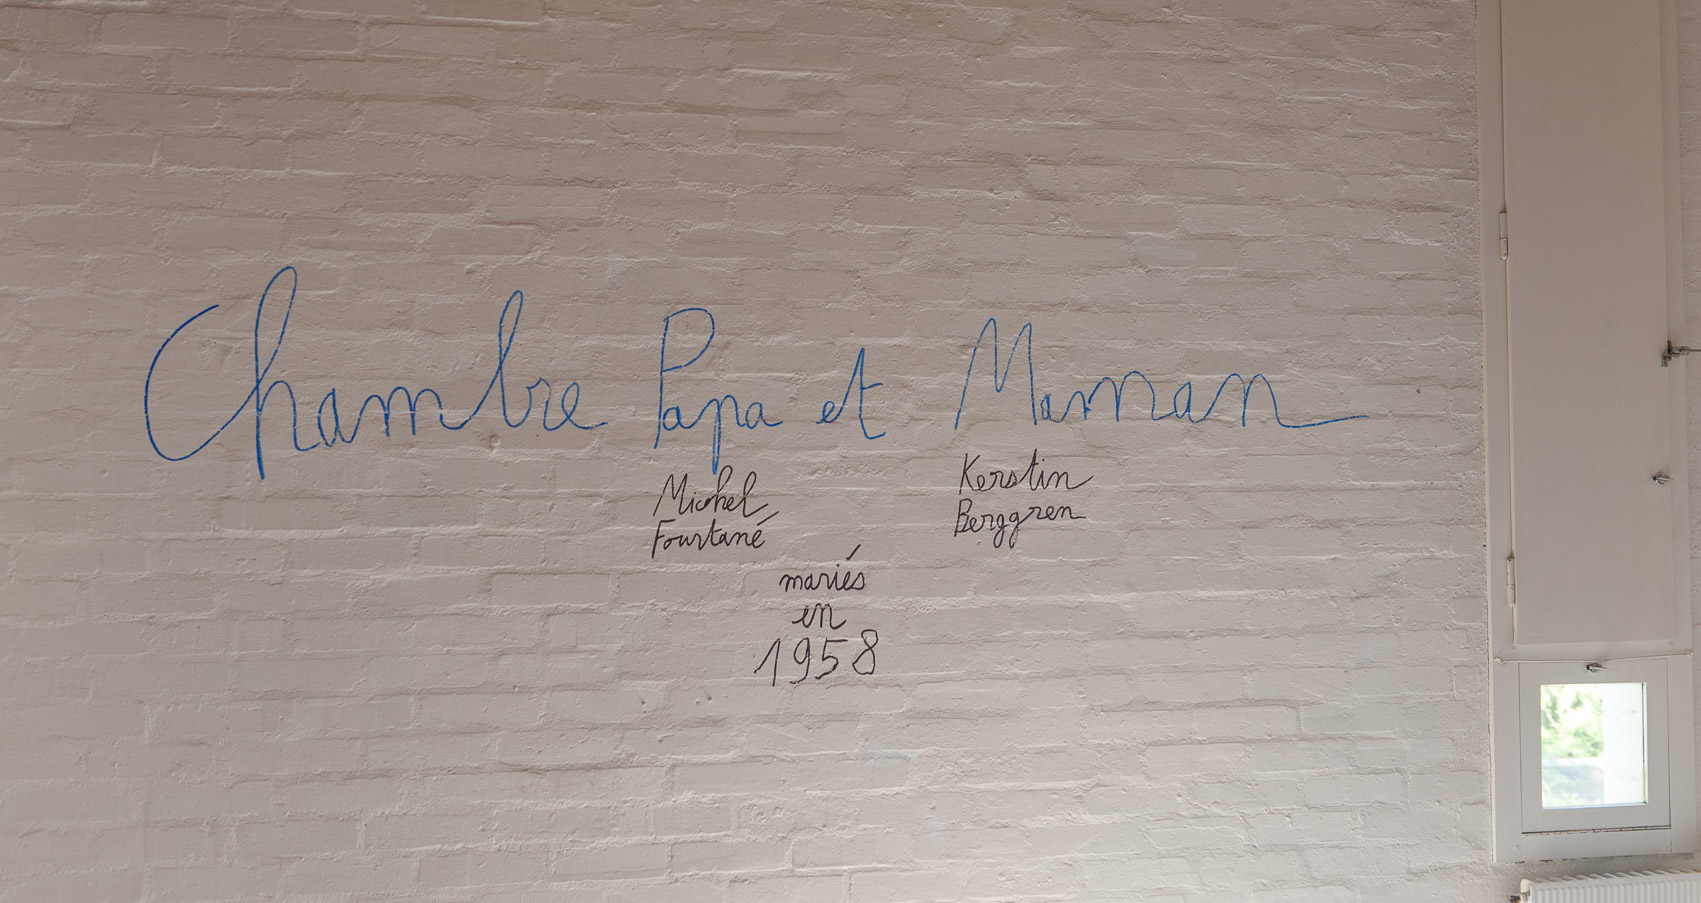 Chambre Papa et Maman
Michel
Fourtané
Kerstin
Berggren
mariés
en
1958